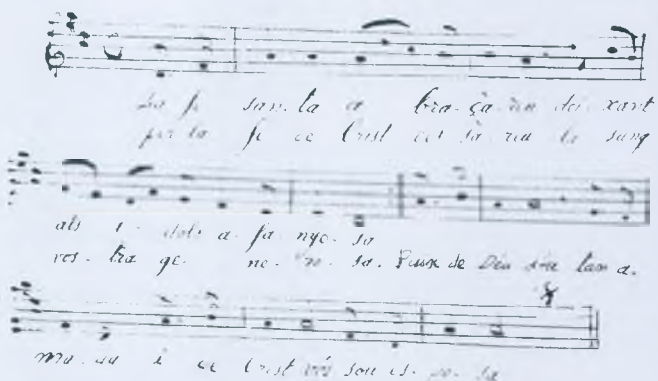 La fe san-ta a bra-ça-reu dei-xant
per la fe de Crist la sang
als i-dols a-fa-nyo-sa
vos-tra ge-ne-ro-sa. Puix de Déu sou tan a-
ma-da i de Crist vós sou es-po-sa